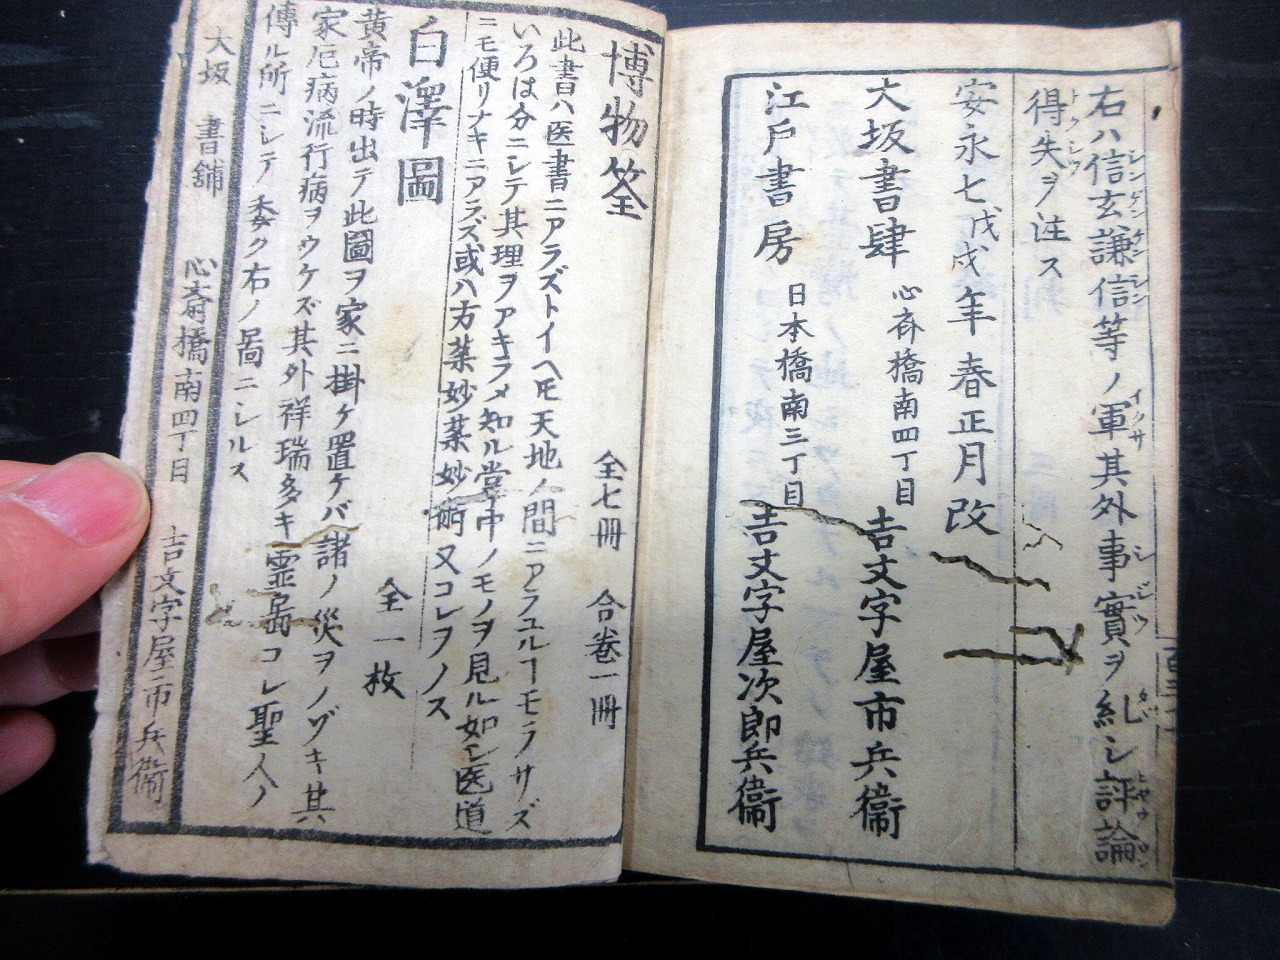 右ハ信玄謙信等ノ軍其外事實ヲ糺シ評論
シンゲンケンシン イクサ シジツ タヾ ヒヤウロン
得失ヲ注ス
トクシツ
安永七戊戌年春正月改
大坂書肆 心斉橋南四丁目 吉文字屋市兵衞
江戸書房 日本橋南三丁目 吉文字屋次郎兵衞
博物筌 全七冊 合巻一冊
此書ハ医書ニアラズトイヘ𪜈天地ノ間ニアラユルヿモラサズ
いろは分ニシテ其理ヲアキラメ知ル掌中ノモノヲ見ル如シ医道
ニモ便リナキニアラズ或ハ方薬妙薬妙術又コレヲノス
白澤圖 全一枚
黄帝ノ時出テ此圖ヲ家ニ掛ケ置ケバ諸ノ災ヲノゾキ其
家厄病流行病ヲウケズ其外祥瑞多キ霊啚コレ聖人ノ
傳ル所ニシテ委ク右ノ啚ニシルス
大坂 書舗 心斎橋南四丁目 吉文字屋市兵衞